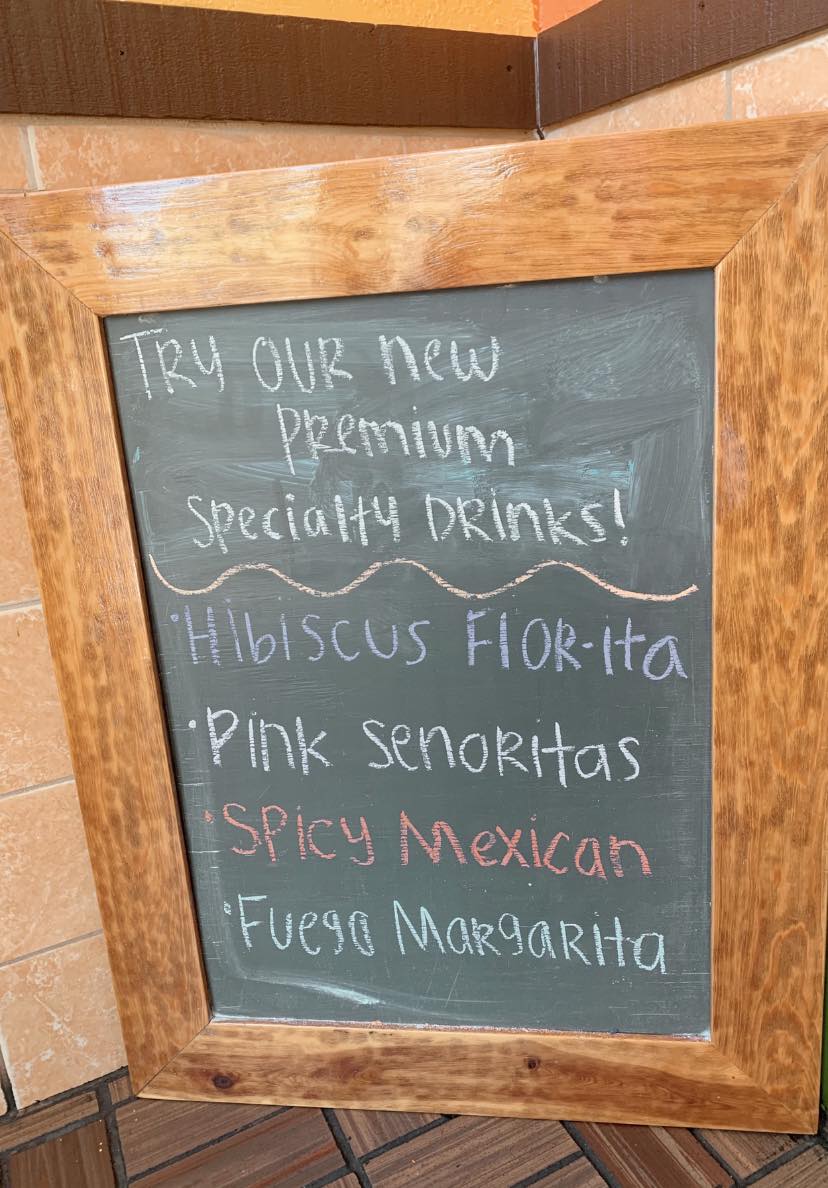 TRY OUR new
PRemium
Specialty DRinks!
·Hibiscus FlOR-ita
·Pink SenoRitas
·Spicy Mexican
·Fuego MaRgaRita